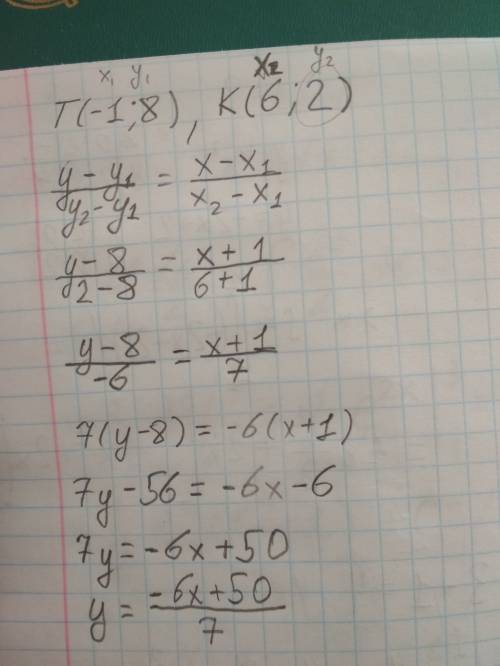 x₁ y₁ x₂ y₂
T(-1;8), K(6;2)
y - y₁ / y₂ - y₁ = x - x₁ / x₂ - x₁
y - 8 / 2 - 8 = x + 1 / 6 + 1
y - 8 / -6 = x + 1 / 7
7(y-8) = -6(x+1)
7y - 56 = -6x - 6
7y = -6x + 50
y = -6x + 50 / 7